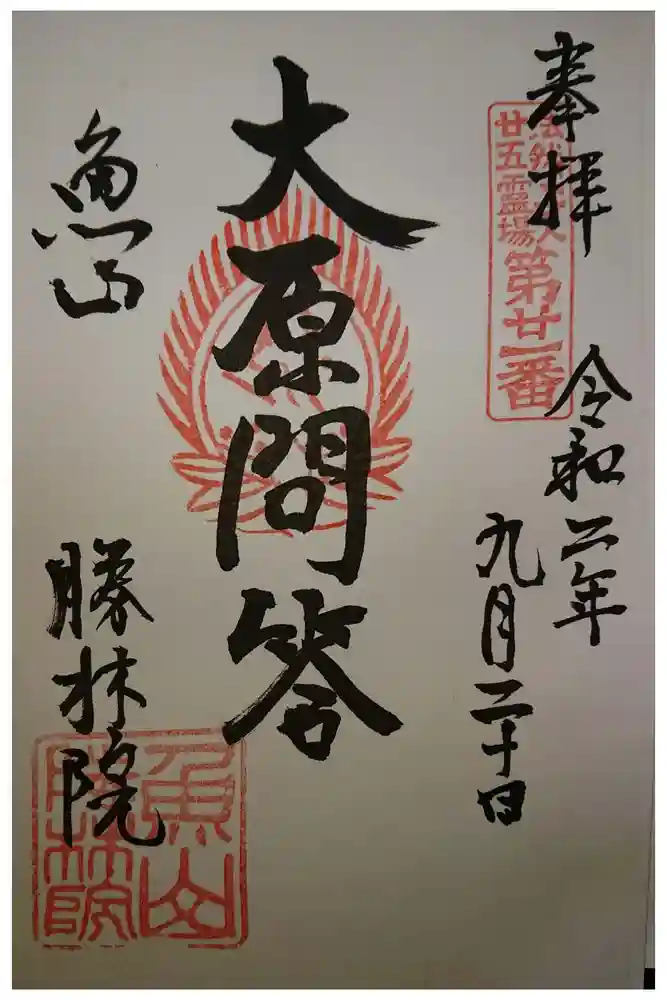 奉拝
法然上人
廿五霊場
第廿一番
令和二年
九月二十日
大原問答
魚山
勝林院
魚山
勝林院